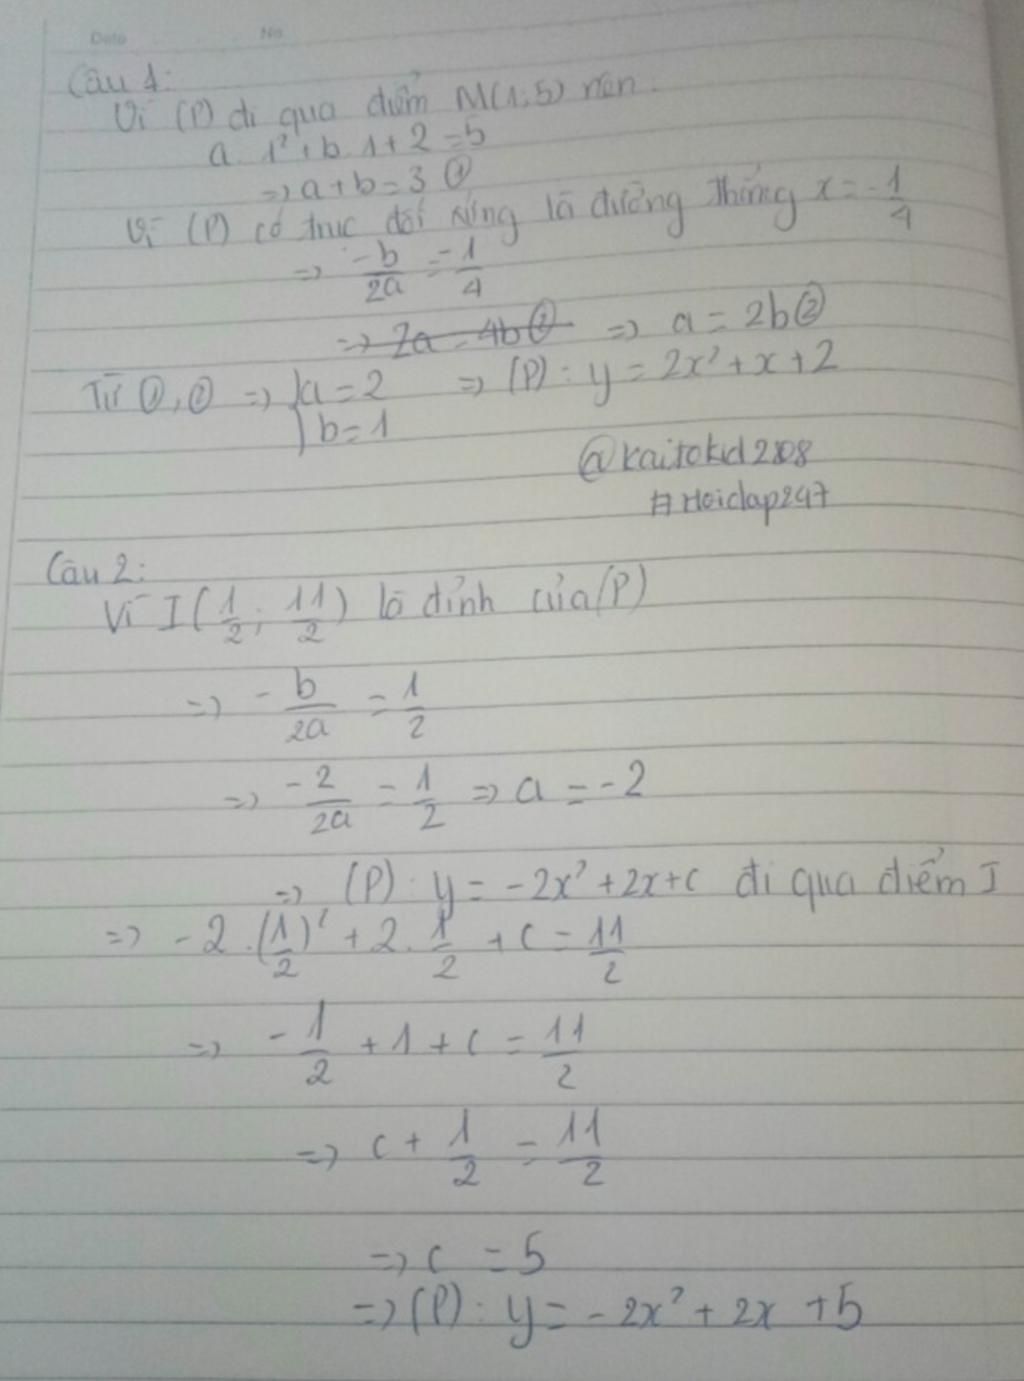 Date No
Câu 1:
Vì (P) đi qua điểm M(1;5) nên
a.1²+b.1+2=5
=> a+b=3 ①
Vì (P) có trục đối xứng là đường thẳng x=-1/4
=> -b/2a = -1/4
=> 2a = 4b② => a=2b②
Từ ①,② => {a=2 => (P): y=2x²+x+2
b=1
@kaitokid2108
#Hoidap247
Câu 2:
Vì I(1/2; 11/2) là đỉnh của (P)
=> -b/2a = 1/2
=> -2/2a = 1/2 => a=-2
=> (P): y=-2x²+2x+c đi qua điểm I
=> -2.(1/2)²+2.1/2+c=11/2
=> -1/2+1+c=11/2
=> c+1/2=11/2
=> c=5
=> (P): y=-2x²+2x+5